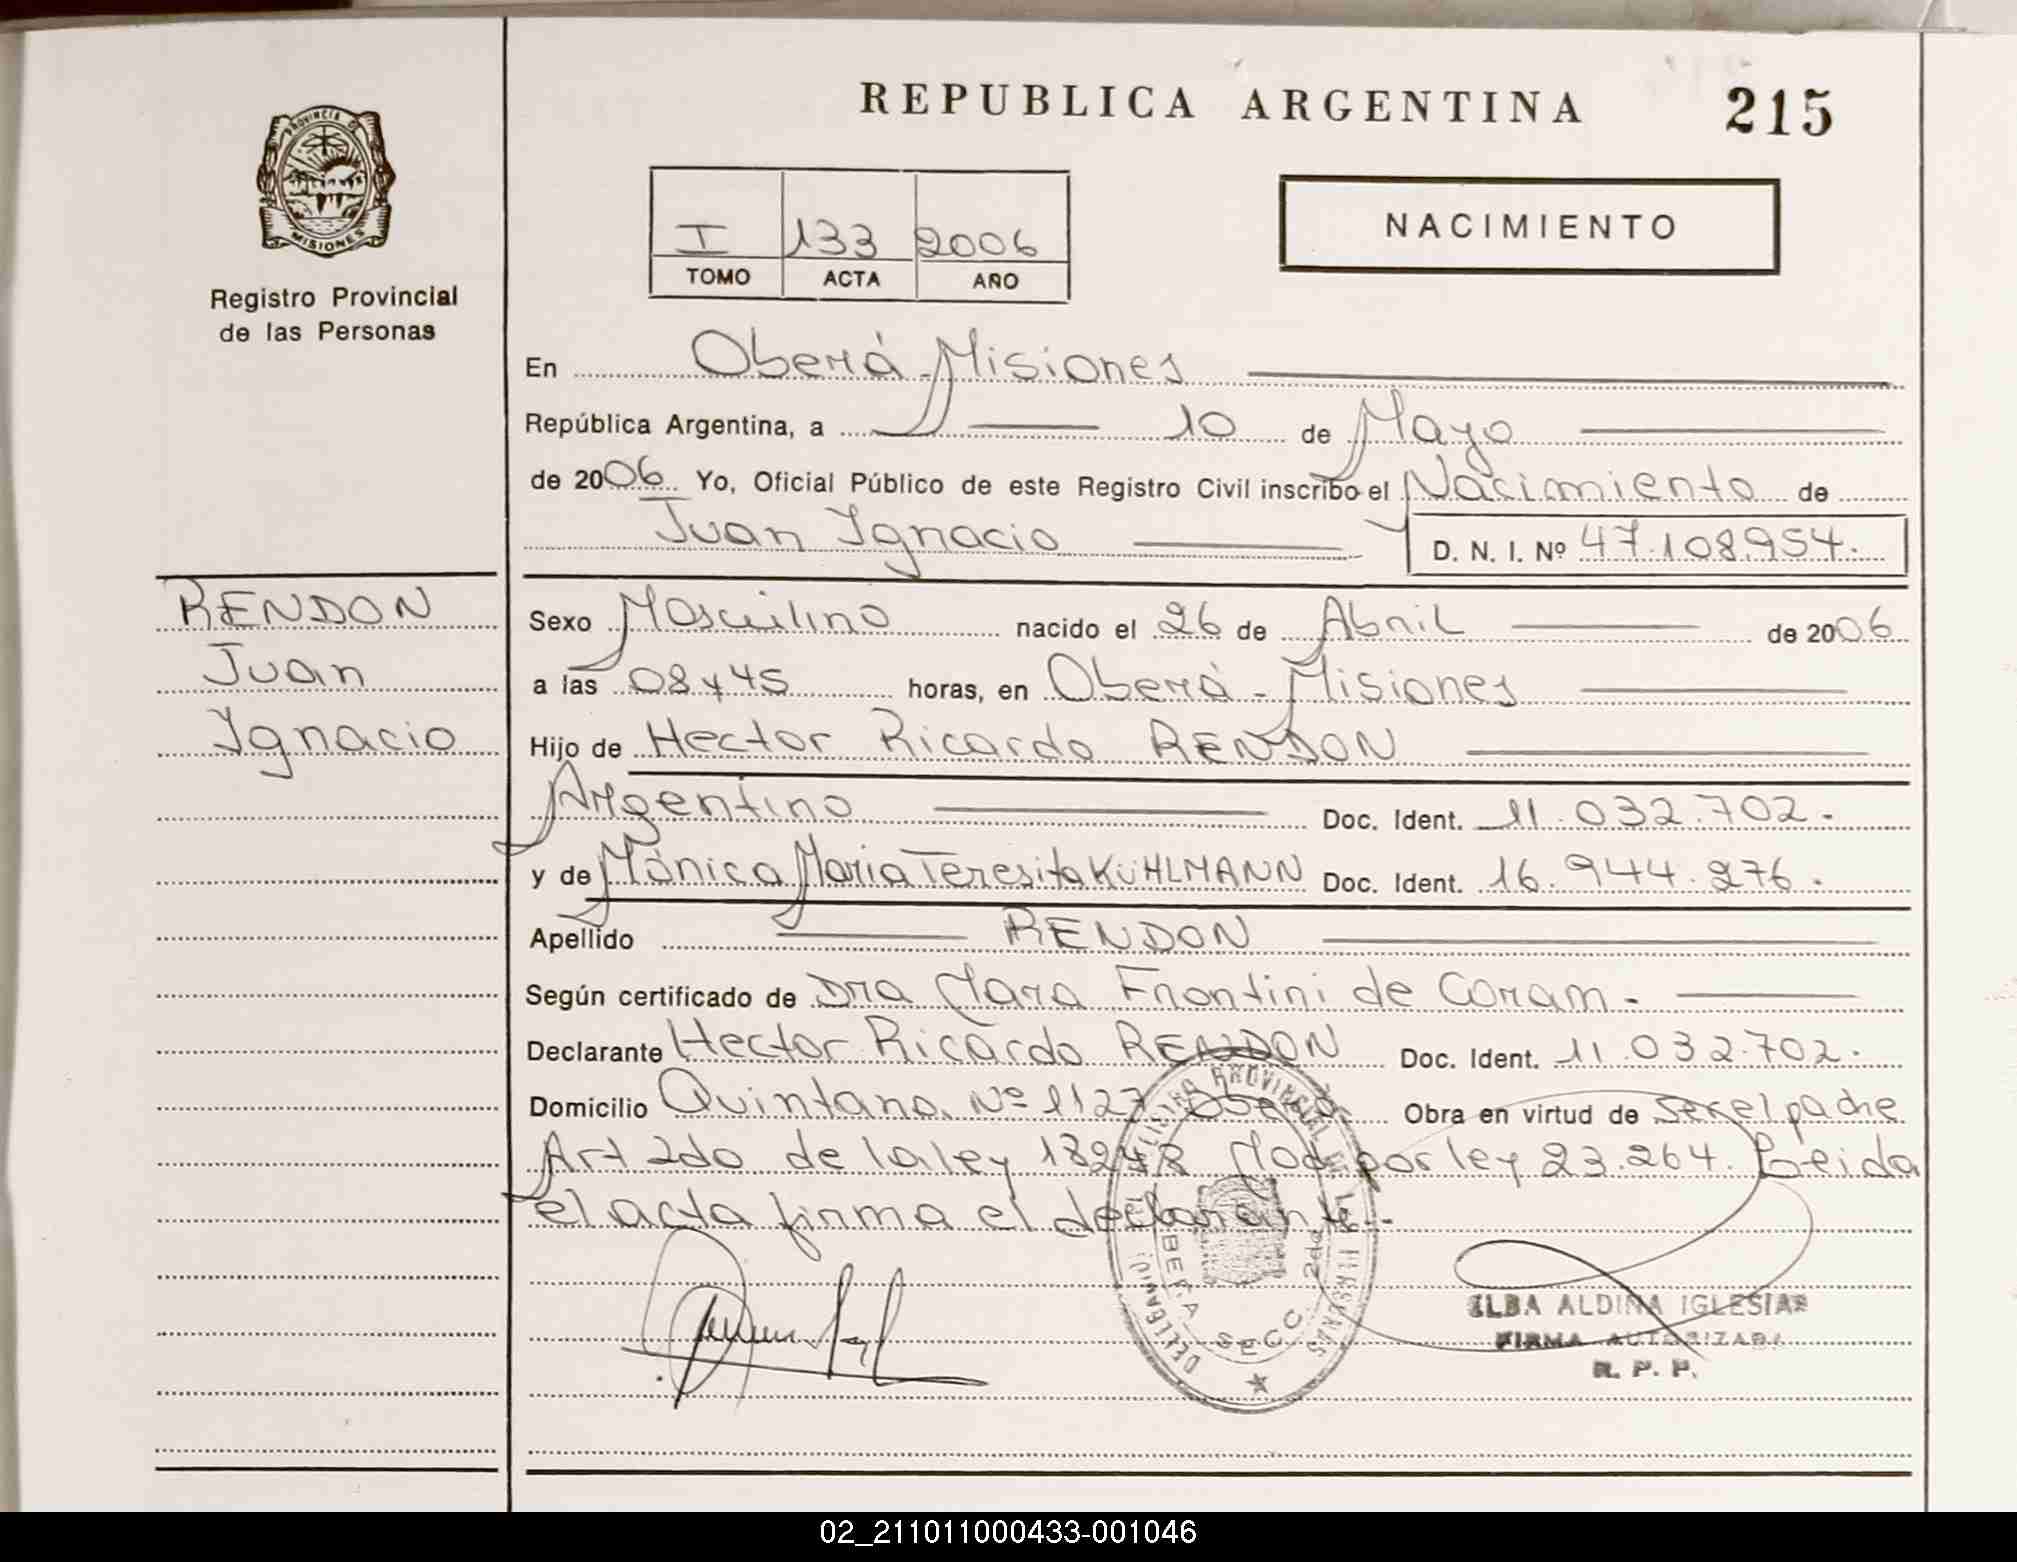 REPUBLICA ARGENTINA
215
PROVINCIA DE
MISIONES
Registro Provincial
de las Personas
I 133 2006
TOMO ACTA AÑO
NACIMIENTO
En Oberá - Misiones
República Argentina, a 10 de Mayo
de 2006 Yo, Oficial Público de este Registro Civil inscribo el Nacimiento de
Juan Ignacio D. N. I. Nº 47.108.954.
RENDON
Juan
Ignacio
Sexo Masculino nacido el 26 de Abril de 2006
a las 08 y 45 horas, en Oberá - Misiones
Hijo de Hector Ricardo RENDON
Argentino Doc. Ident. 11.032.702.
y de Mónica Maria Teresita KUHLMANN Doc. Ident. 16.944.276.
Apellido RENDON
Según certificado de Dra Mara Frontini de Coram.
Declarante Hector Ricardo RENDON Doc. Ident. 11.032.702.
Domicilio Quintana Nº 1127 Oberá Obra en virtud de ser el padre
Art 2do de la ley 18248 Mod por ley 23.264. Leida
el acta firma el declarante.
ELBA ALDINA IGLESIAS
FIRMA AUTORIZADA
R. P. P.
02_211011000433-001046